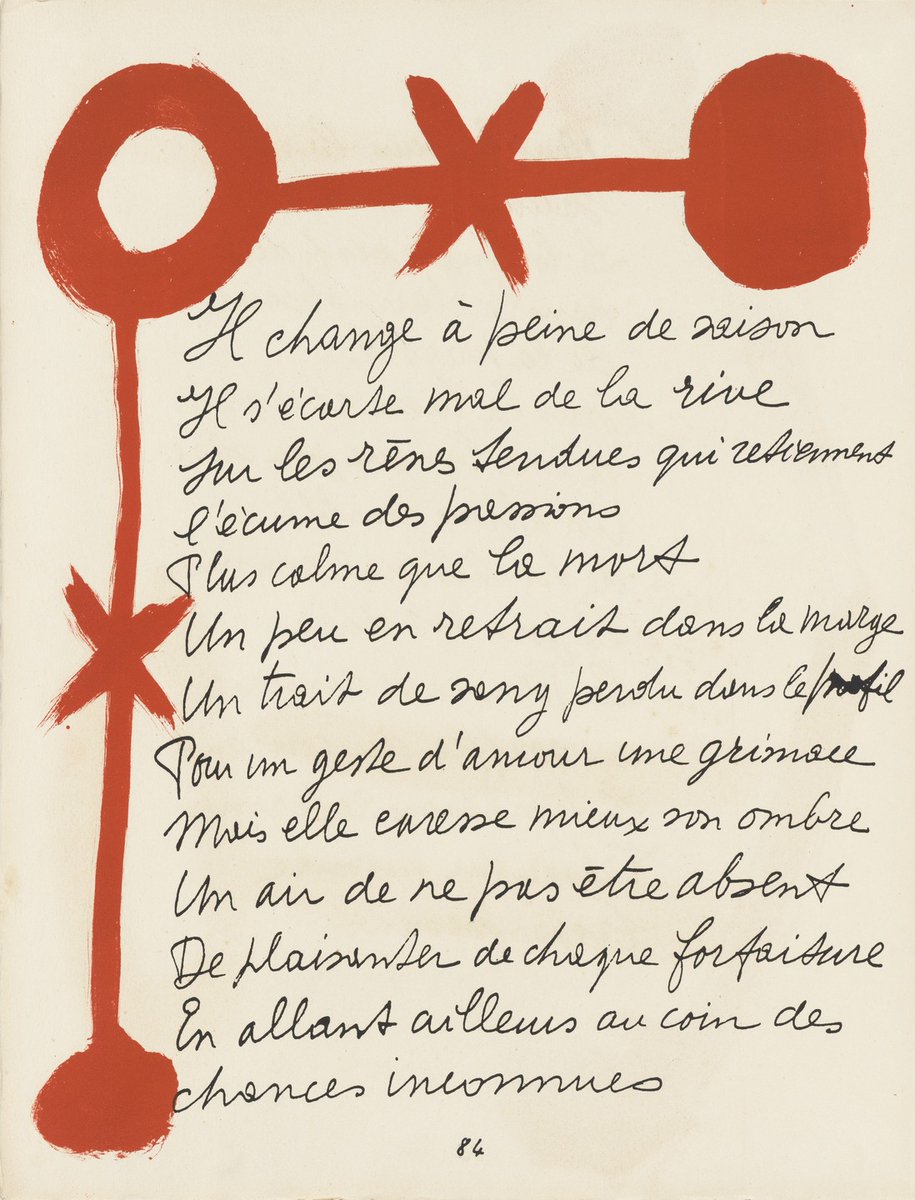 Il change à peine de saison
Il s'écarte mal de la rive
Sur les rênes tendues qui retiennent
l'écume des passions
Plus calme que la mort
Un peu en retrait dans la marge
Un trait de sang perdu dans le profil
Pour un geste d'amour une grimace
Mais elle caresse mieux son ombre
Un air de ne pas être absent
De plaisanter de chaque forfaiture
En allant ailleurs au coin des
chances inconnues
84